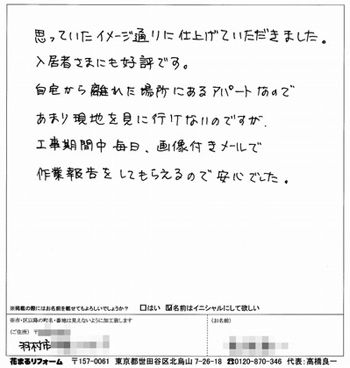 思っていたイメージ通りに仕上げていただきました。
入居者さまにも好評です。
自宅から離れた場所にあるアパートなので
あまり現地を見に行けないのですが、
工事期間中毎日、画像付きメールで
作業報告をしてもらえるので安心でした。
※掲載の際にはお名前を載せてもよろしいでしょうか? □はい ☑名前はイニシャルにして欲しい
※市・区以降の町名・番地は見えないように加工致します
(ご住所) (お名前)
羽村市
花まるリフォーム 〒157-0061 東京都世田谷区北烏山7-26-18 ☎0120-870-346 代表:高橋良一